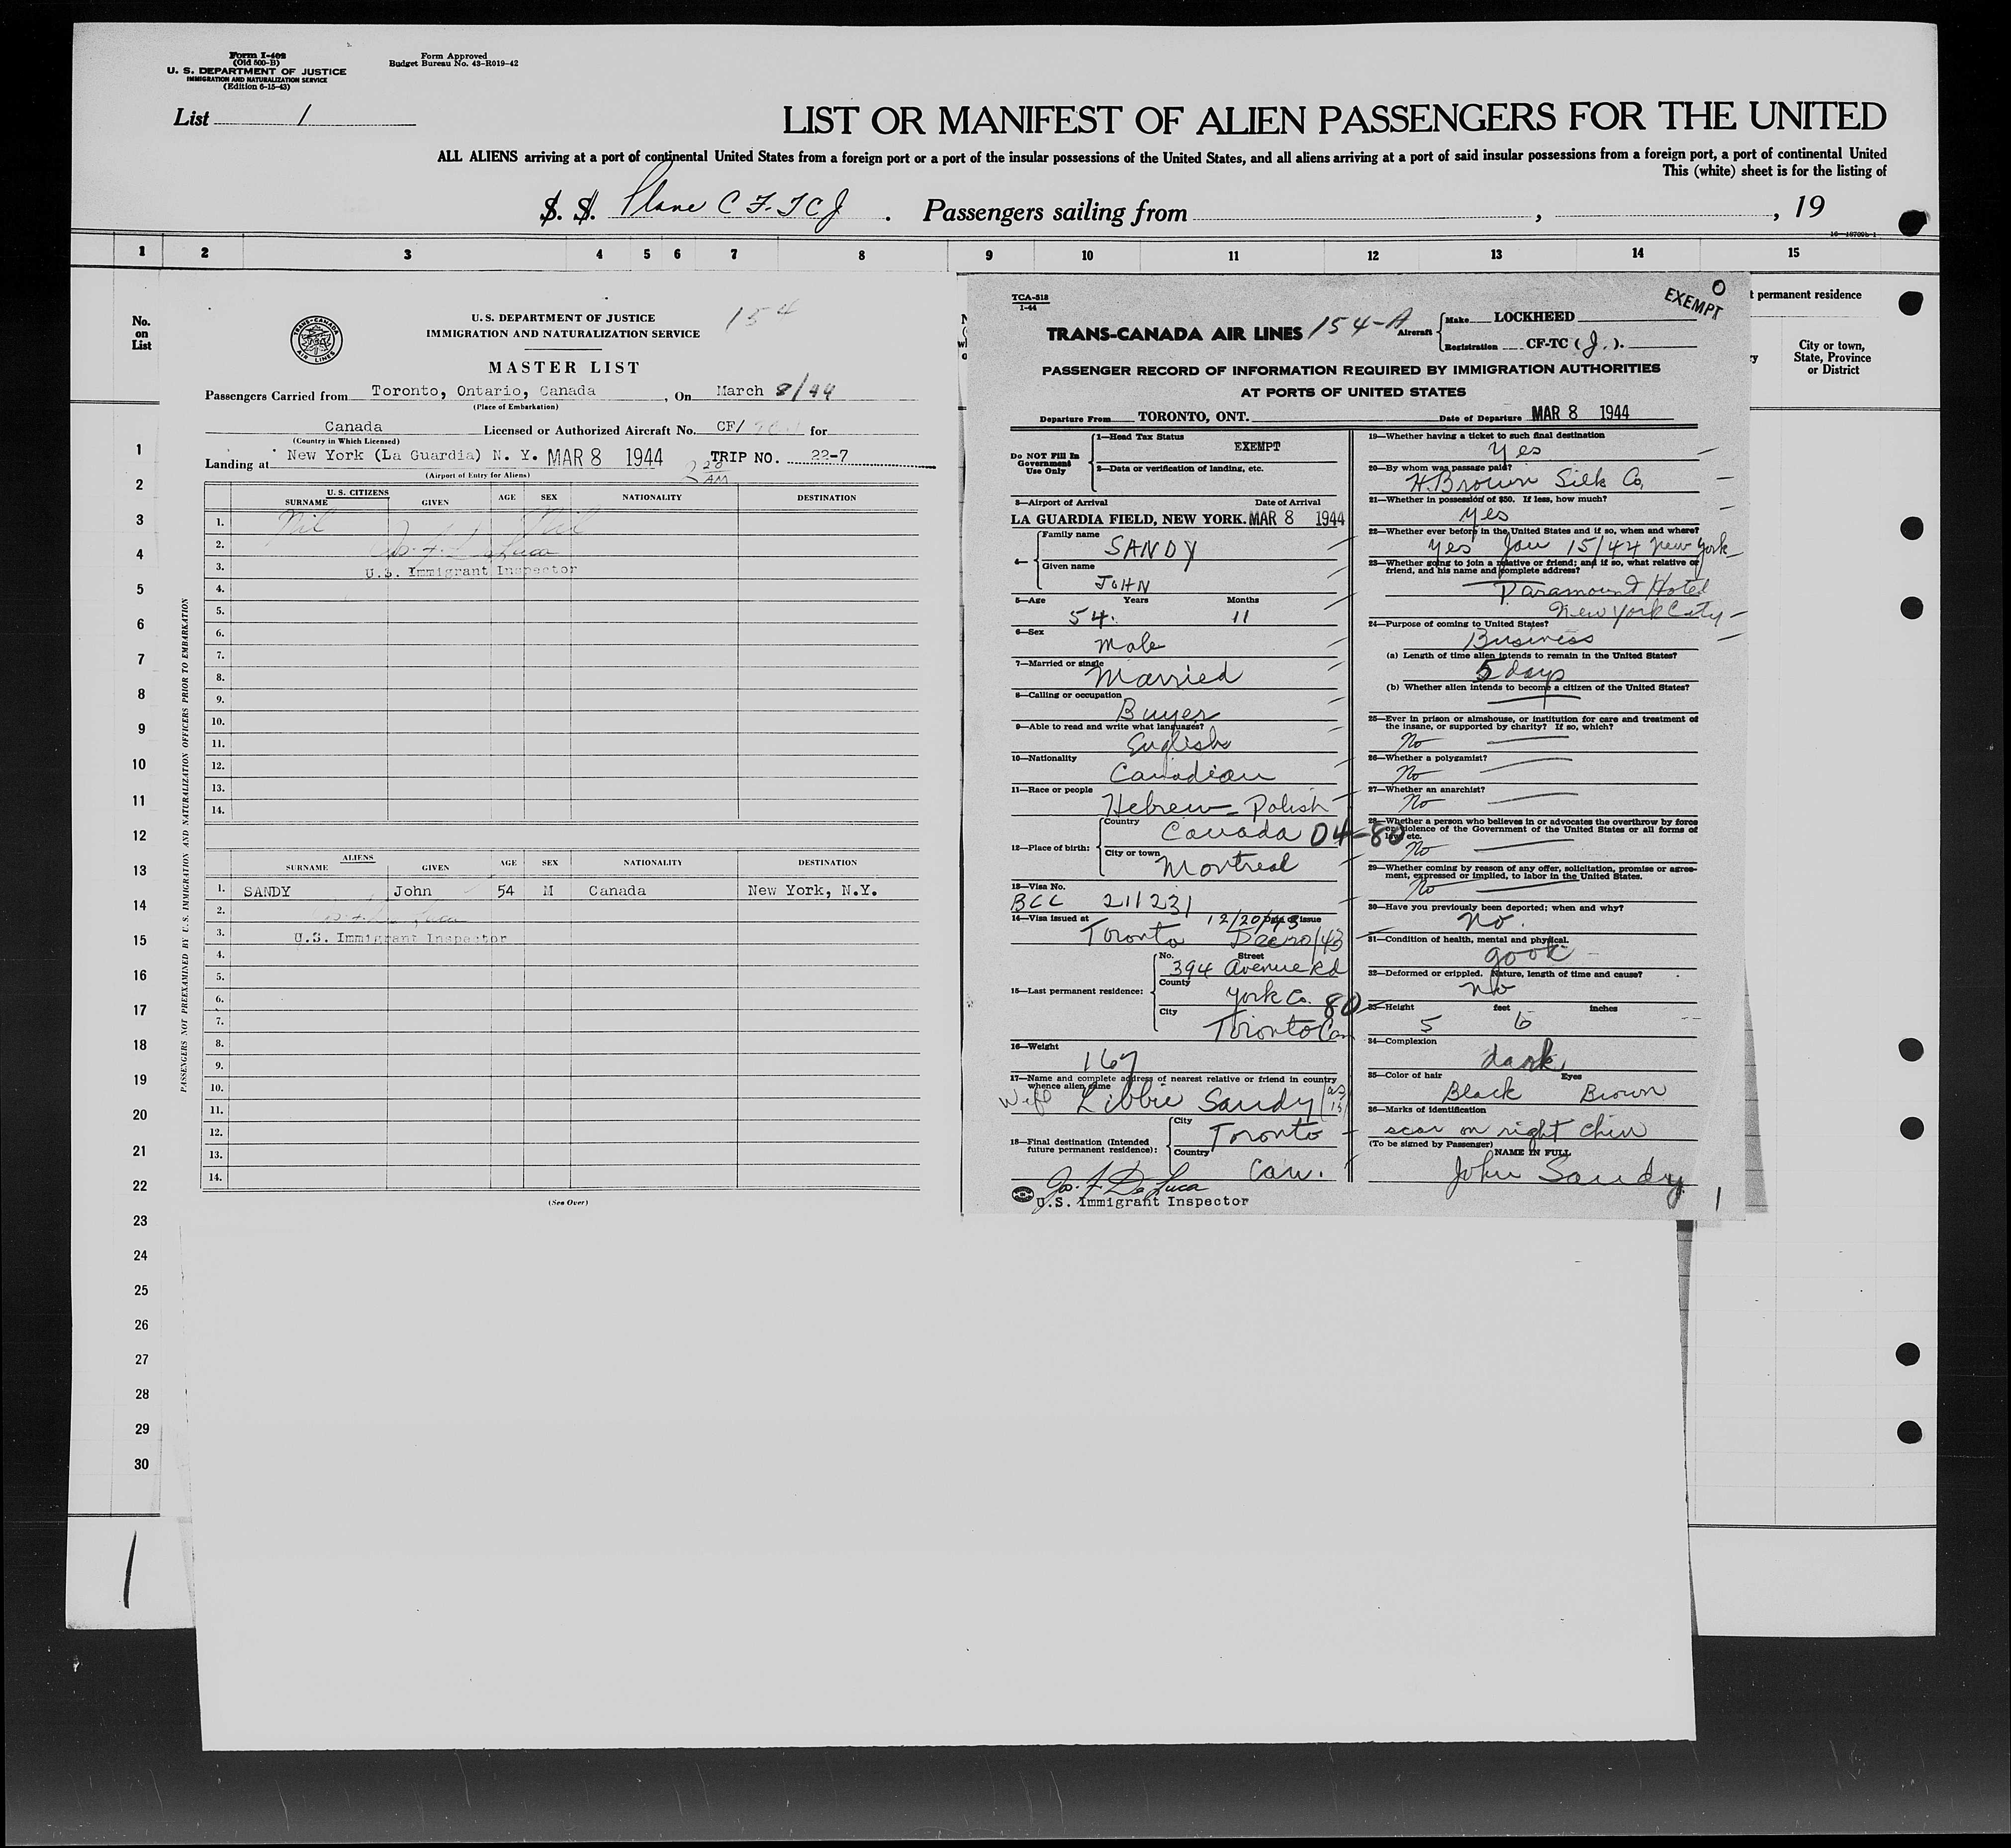 Form I-402
(Old 500-B)
U. S. DEPARTMENT OF JUSTICE
IMMIGRATION AND NATURALIZATION SERVICE
(Edition 6-15-43)
Form Approved
Budget Bureau No. 43-R019-42
List 1
LIST OR MANIFEST OF ALIEN PASSENGERS FOR THE UNITED
ALL ALIENS arriving at a port of continental United States from a foreign port or a port of the insular possessions of the United States, and all aliens arriving at a port of said insular possessions from a foreign port, a port of continental United
This (white) sheet is for the listing of
S. S. Plane CF-TCJ. Passengers sailing from , , 19
1 2 3 4 5 6 7 8 9 10 11 12 13 14 15
No.
on
List
1
2
3
4
5
6
7
8
9
10
11
12
13
14
15
16
17
18
19
20
21
22
23
24
25
26
27
28
29
30
1
TRANS-CANADA
AIR LINES
U.S. DEPARTMENT OF JUSTICE
IMMIGRATION AND NATURALIZATION SERVICE
154
MASTER LIST
Passengers Carried from Toronto, Ontario, Canada, On March 8/44
(Place of Embarkation)
Canada Licensed or Authorized Aircraft No. CF/ for
(Country in Which Licensed)
Landing at New York (La Guardia) N. Y. MAR 8 1944 TRIP NO. 22-7
(Airport of Entry for Aliens)
2 28 AM
U.S. CITIZENS
SURNAME GIVEN AGE SEX NATIONALITY DESTINATION
1. Nil Nil
2. Jos. F. De Luca
3. U.S. Immigrant Inspector
4.
5.
6.
7.
8.
9.
10.
11.
12.
13.
14.
ALIENS
SURNAME GIVEN AGE SEX NATIONALITY DESTINATION
1. SANDY John 54 M Canada New York, N.Y.
2. Jos. F. De Luca
3. U.S. Immigrant Inspector
4.
5.
6.
7.
8.
9.
10.
11.
12.
13.
14.
(See Over)
PASSENGERS NOT PREEXAMINED BY U.S. IMMIGRATION AND NATURALIZATION OFFICERS PRIOR TO EMBARKATION
TCA-518
1-44
EXEMPT
0
TRANS-CANADA AIR LINES 154-A
Aircraft Make LOCKHEED
Registration CF-TC (J.).
PASSENGER RECORD OF INFORMATION REQUIRED BY IMMIGRATION AUTHORITIES
AT PORTS OF UNITED STATES
Departure From TORONTO, ONT. Date of Departure MAR 8 1944
Do NOT Fill In
Government
Use Only
1—Head Tax Status
EXEMPT
2—Data or verification of landing, etc.
3—Airport of Arrival Date of Arrival
LA GUARDIA FIELD, NEW YORK. MAR 8 1944
4—
Family name
SANDY
Given name
JOHN
5—Age Years Months
54. 11
6—Sex
Male
7—Married or single
Married
8—Calling or occupation
Buyer
9—Able to read and write what languages?
English
10—Nationality
Canadian
11—Race or people
Hebrew - Polish
12—Place of birth:
Country
Canada 04-80
City or town
Montreal
13—Visa No.
BCC 211231
14—Visa issued at Date of issue
12/20/43
Toronto Dec 20/43
15—Last permanent residence:
No. Street
394 Avenue Rd
County
York Co. 80
City
Toronto Can
16—Weight
167
17—Name and complete address of nearest relative or friend in country
whence alien came
Wife Libbie Sandy (as 15)
18—Final destination (Intended
future permanent residence):
City
Toronto
Country
Can.
Jos. F. De Luca
U.S. Immigrant Inspector
19—Whether having a ticket to such final destination
Yes
20—By whom was passage paid?
H. Brown Silk Co,
21—Whether in possession of $50. If less, how much?
yes
22—Whether ever before in the United States and if so, when and where?
yes Jan 15/44 New York
23—Whether going to join a relative or friend; and if so, what relative or
friend, and his name and complete address?
Paramount Hotel
New York City
24—Purpose of coming to United States?
Business
(a) Length of time alien intends to remain in the United States?
5 days
(b) Whether alien intends to become a citizen of the United States?
25—Ever in prison or almshouse, or institution for care and treatment of
the insane, or supported by charity? If so, which?
No
26—Whether a polygamist?
No
27—Whether an anarchist?
No
28—Whether a person who believes in or advocates the overthrow by force
or violence of the Government of the United States or all forms of
law, etc.
No
29—Whether coming by reason of any offer, solicitation, promise or agree-
ment, expressed or implied, to labor in the United States.
No
30—Have you previously been deported; when and why?
No.
31—Condition of health, mental and physical.
good
32—Deformed or crippled. Nature, length of time and cause?
no
33—Height feet inches
5 6
34—Complexion
dark
35—Color of hair Eyes
Black Brown
36—Marks of identification
scar on right chin
(To be signed by Passenger)
NAME IN FULL
John Sandy
1
t permanent residence
City or town,
State, Province
or District